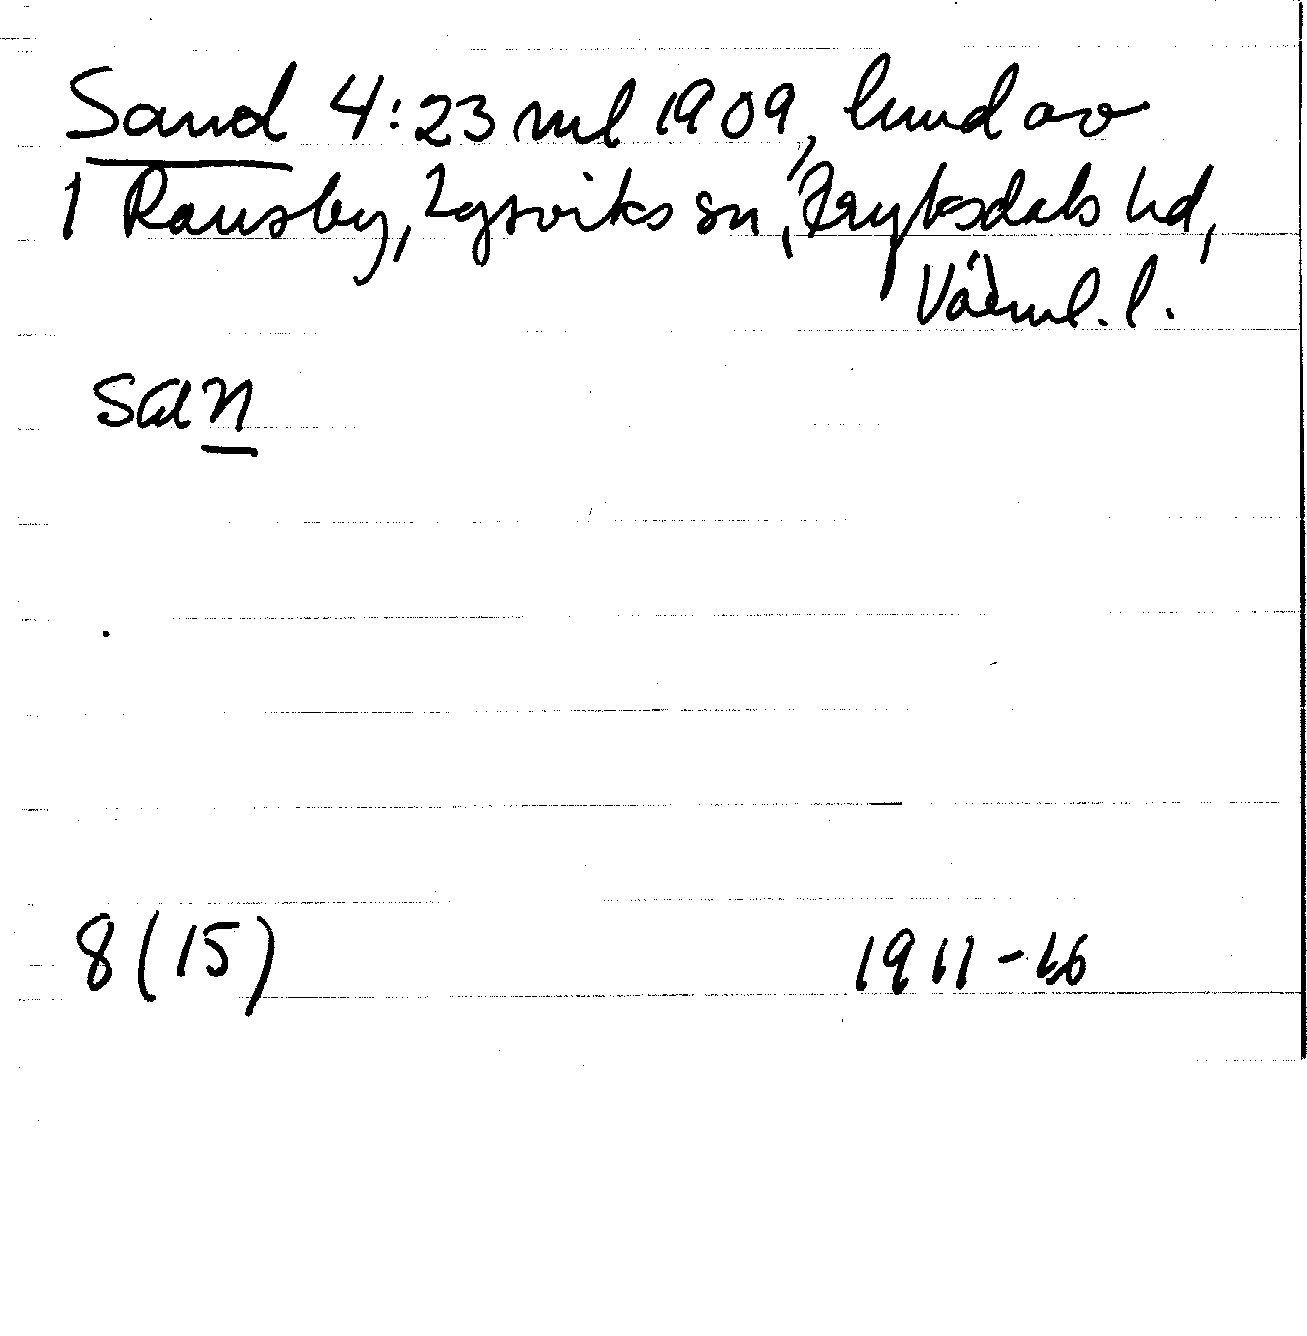 Sand 4:23 ml 1909, lund av
1 Ransby, Lysviks sn, Fryksdals hd,
Värml. l.
san
8 (15) 1911-66